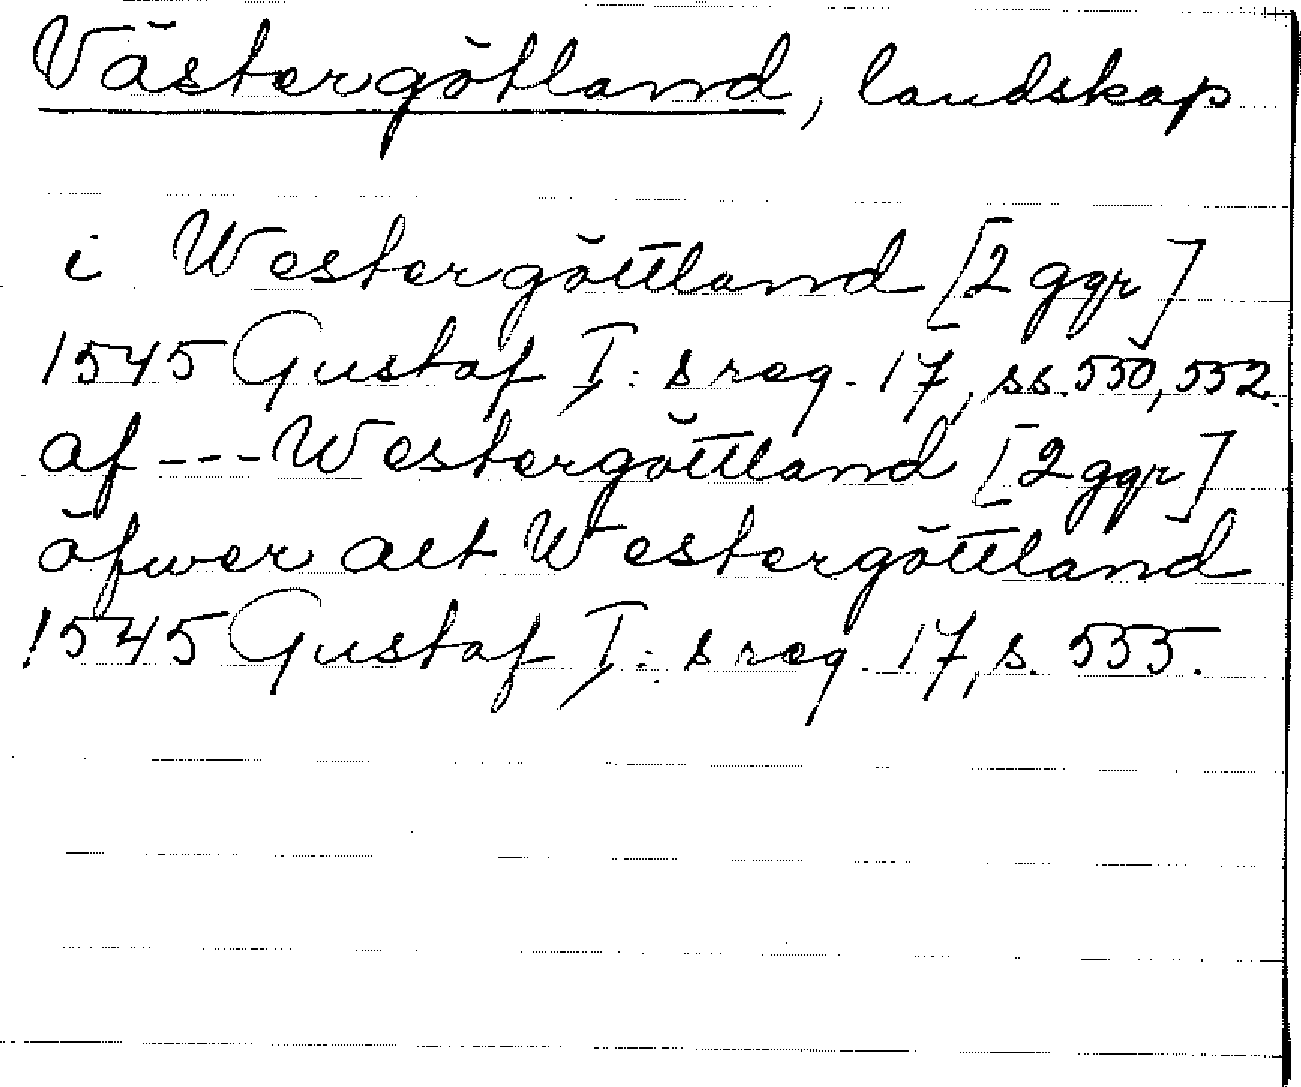 Västergötland, landskap
i Westergöttland [2 ggr]
1545 Gustaf I:s reg. 17, ss. 550, 552.
af --- Westergöttland [2 ggr]
öfwer alt Westergöttland
1545 Gustaf I:s reg. 17, s. 555.